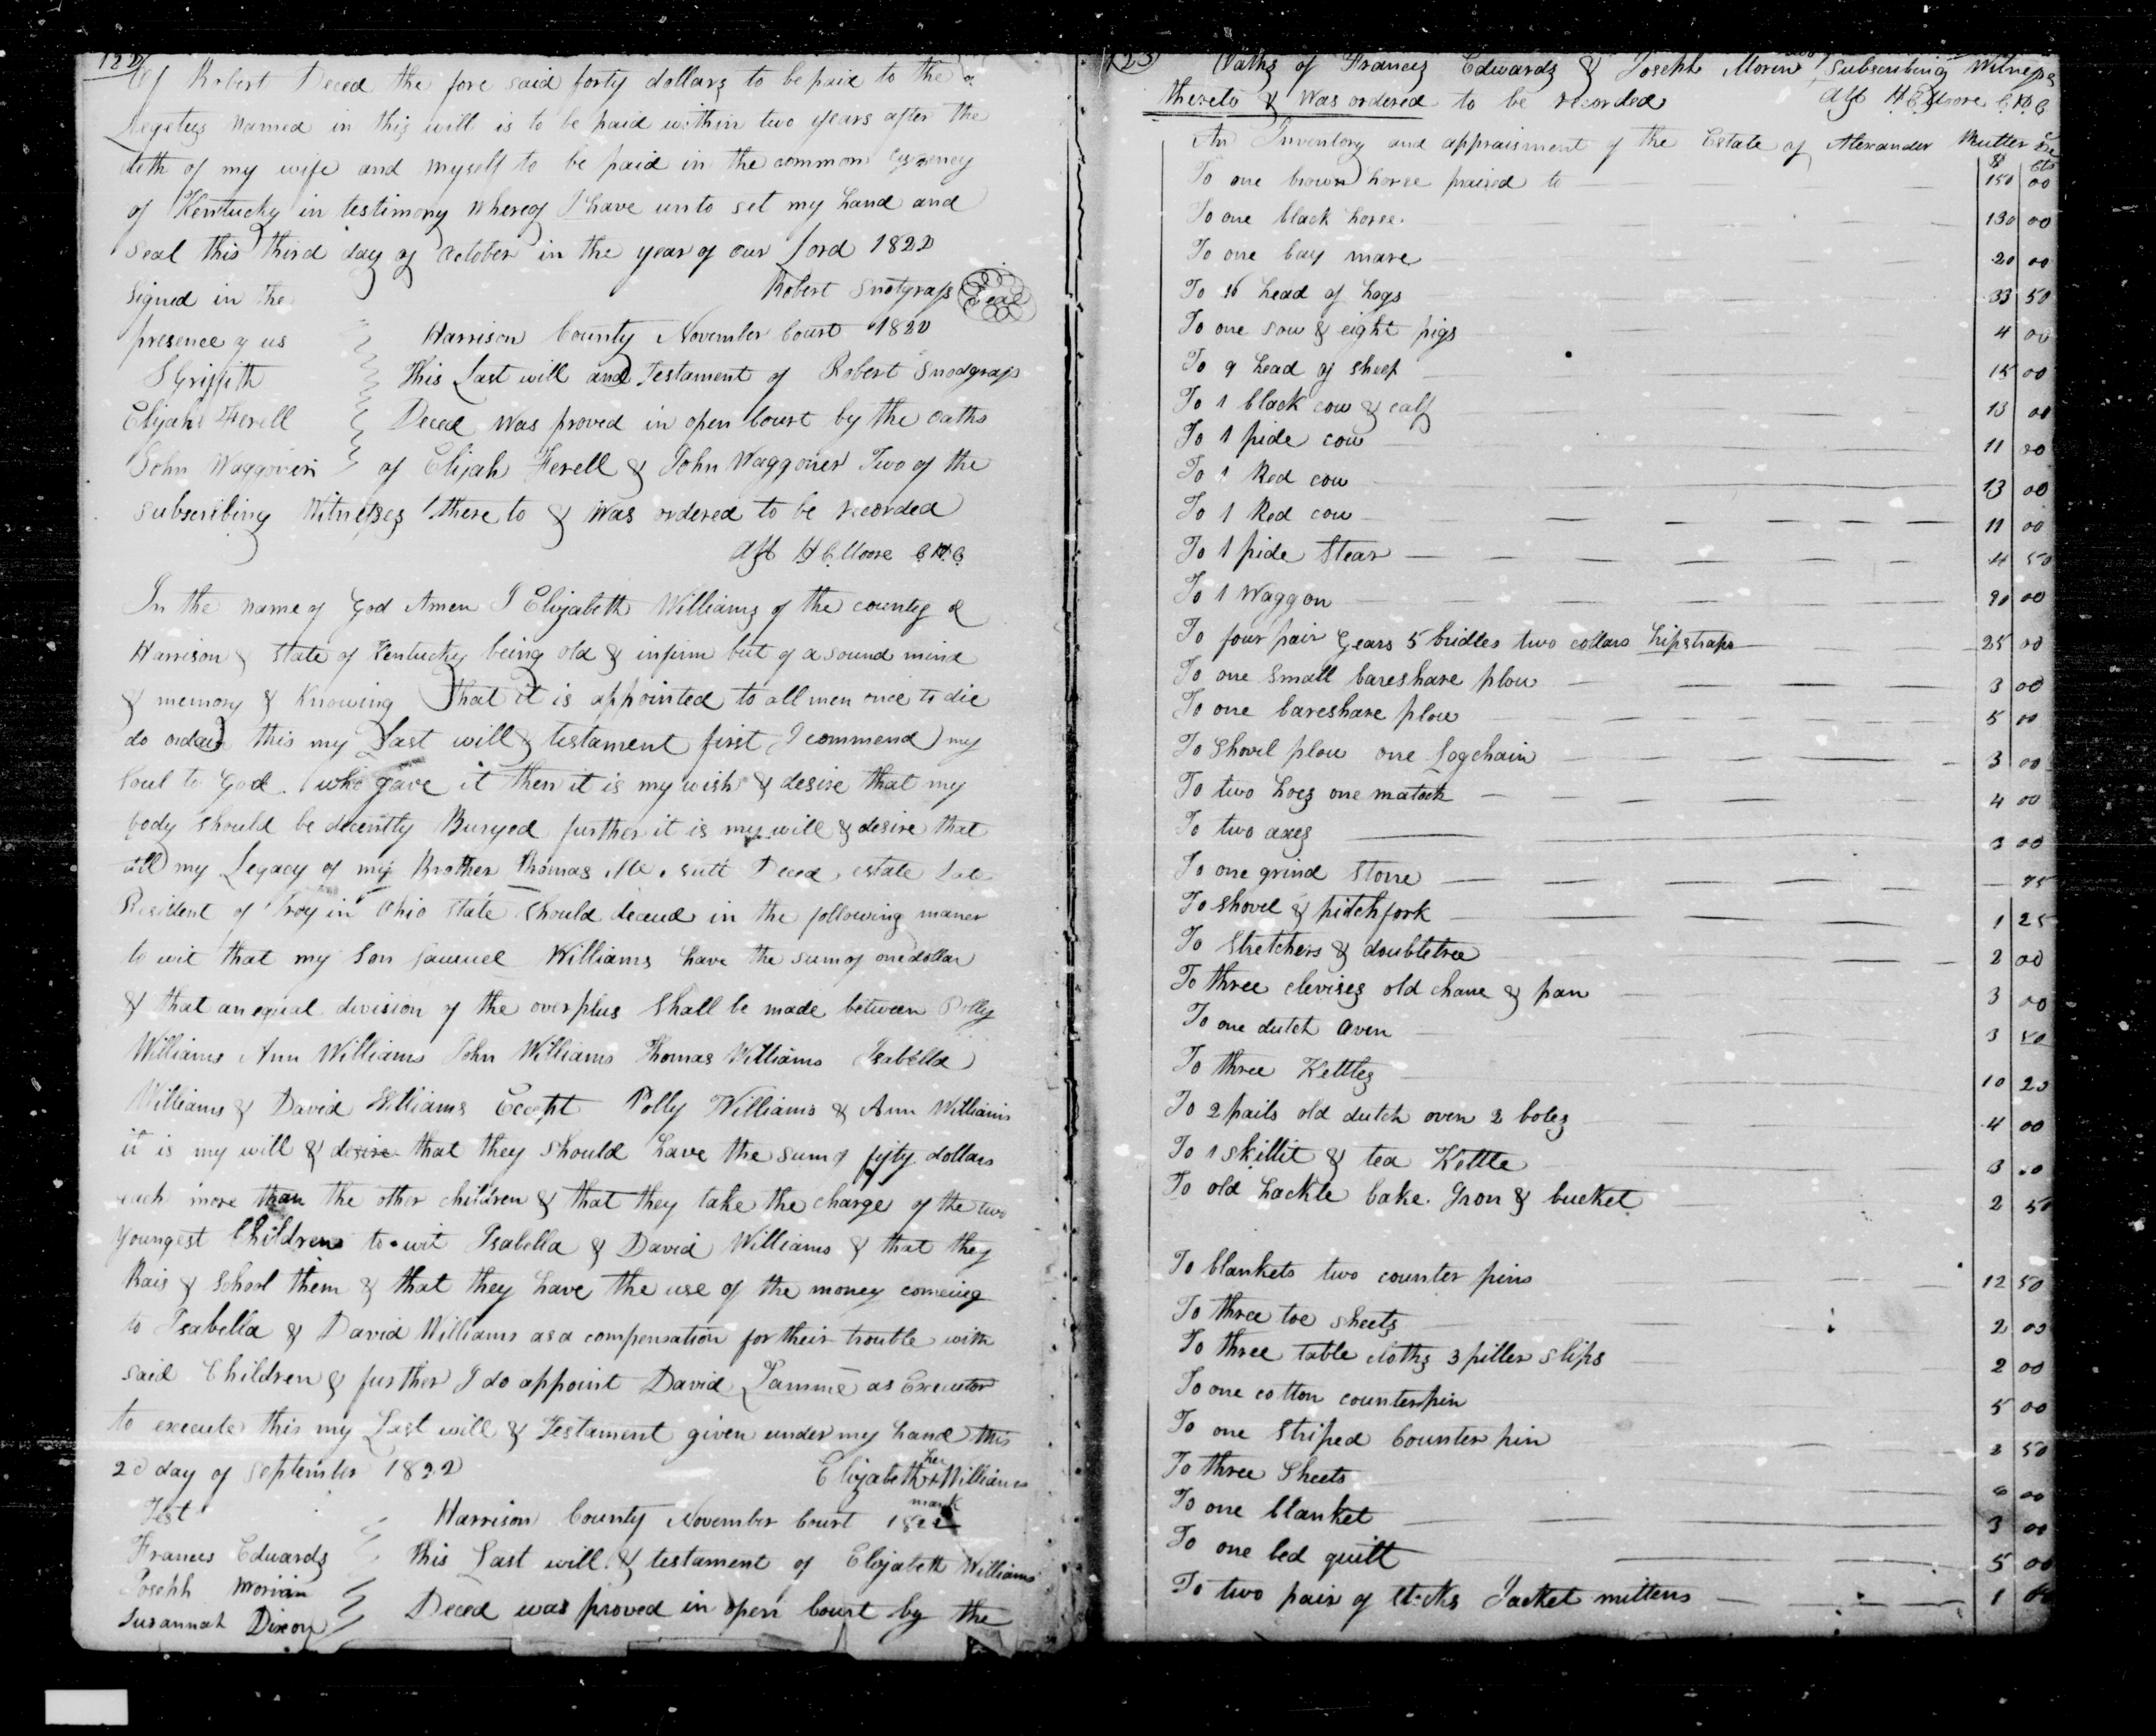 122
Of Robert Deced the fore said forty dollars to be paid to the
Legetus named in this will is to be paid within two years after the
deth of my wife and myself to be paid in the common
of Kentucky in testimony whereof I have unto set my hand and
seal this third day of October in the year of our Lord 1822
Robert Snotgrass Seal
Signed in the
presence of us
S Griffith
Elijah Ferell
John Waggoner
Harrison County November Court 1822
This Last will and Testament of Robert Snodgrass
Deced was proved in open Court by the oaths
of Elijah Ferell & John Waggoner Two of the
subscribing Witnesses there to & was ordered to be recorded
Att H C Moore C H C
In the name of God Amen I Elizabeth Williams of the county of
Harrison & state of Kentucky being old & infirm but of a sound mind
& memory & knowing that it is appointed to all men once to die
do ordain this my Last will & testament first I commend my
soul to God who gave it then it is my wish & desire that my
body should be decently Buryed further it is my will & desire that
all my Legacy of my Brother Thomas Deced estate
Resident of Troy in Ohio state should decend in the following maner
to wit that my Son Samuel Williams have the sum of one dollar
& that an equal division of the overplus shall be made between Polly
Williams Ann Williams John Williams Thomas Williams Isabella
Williams & David Williams Ecept Polly Williams & Ann Williams
it is my will & desire that they should have the sum of fifty dollars
each more than the other children & that they take the charge of the two
youngest Children to wit Isabella & David Williams & that they
Rais & School them & that they have the use of the money comeing
to Isabella & David Williams as a compensation for their trouble with
said Children & further I do appoint David Lamme as Executor
to execute this my Last will & Testament given under my hand this
20 day of September 1822
Elizabeth her mark Williams
Test
Frances Edwards
Joseph
Susannah Dixon
Harrison County November Court 1822
This Last will & testament of Elizabeth Williams
Deced was proved in open Court by the
123
Oaths of Frances Edwards & Joseph Moren Subscribing Witnesses
thereto & was ordered to be recorded Att H C Moore C H C
An Inventory and appraisment of the Estate of Alexander
$ cts
To one brown horse praised to 150 00
To one black horse 130 00
To one bay mare 20 00
To 16 head of hogs 33 50
To one sow & eight pigs 4 00
To 9 head of sheep 15 00
To 1 black cow & calf 13 00
To 1 pide cow 11 00
To 1 Red cow 13 00
To 1 Red cow 11 00
To 1 pide Stear 4 50
To 1 Waggon 90 00
To four pair Gears 5 bridles two collars hipstraps 25 00
To one small bareshare plow 3 00
To one bareshare plow 5 00
To Shovel plow one Logchain 3 00
To two hoes one matock 4 00
To two axes 3 00
To one grind Stone 75
To shovel & pitchfork 1 25
To Stretchers & doubletree 2 00
To three clevises old chane & pan 3 00
To one dutch oven 3 50
To three Kettles 10 20
To 2 pails old dutch oven 2 boles 4 00
To 1 skillit & tea Kettle 3 00
To old hackle bake Iron & bucket 2 50
To blankets two counter pins 12 50
To three toe sheets 2 00
To three table cloths 3 piller slips 2 00
To one cotton counterpin 5 00
To one Striped Counter pin 2 50
To three Sheets 00
To one blanket 3 00
To one bed quilt 5 00
To two pair of Jacket mittens 1